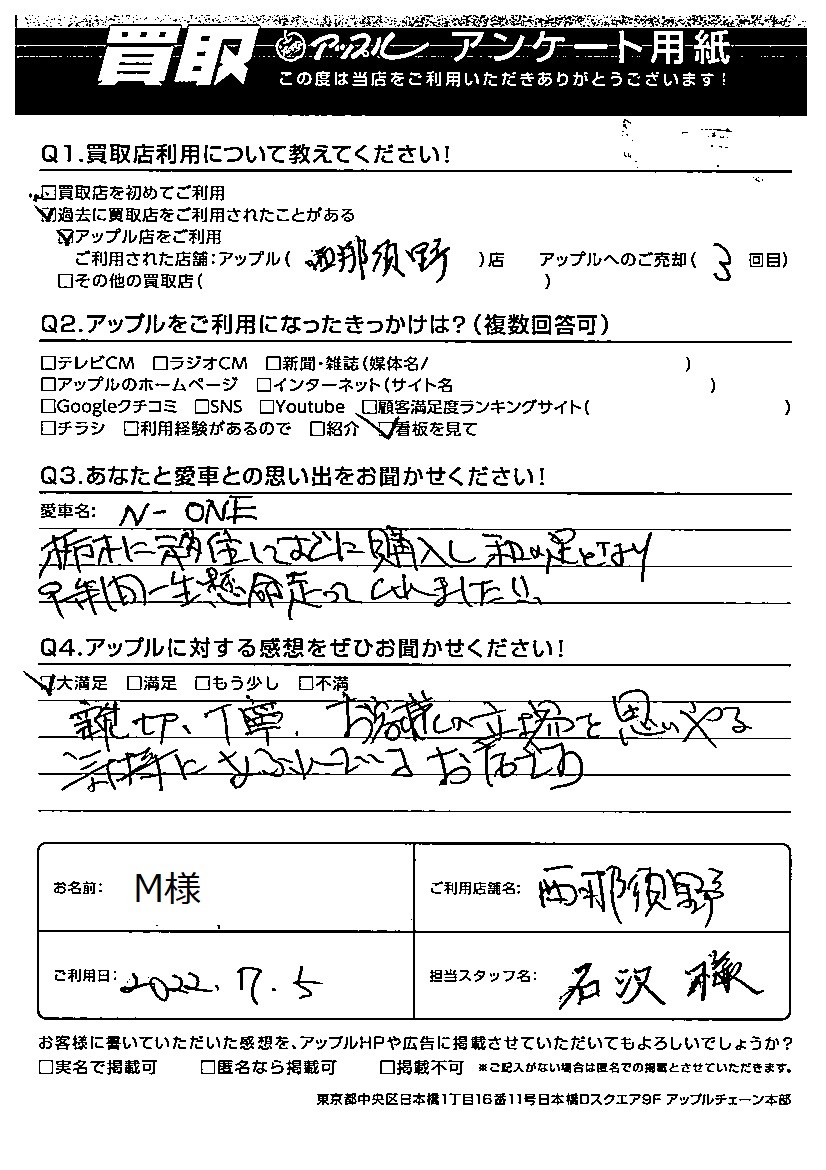 買取 アップル アンケート用紙
この度は当店をご利用いただきありがとうございます!
Q1.買取店利用について教えてください!
□買取店を初めてご利用
☑過去に買取店をご利用されたことがある
☑アップル店をご利用
ご利用された店舗:アップル( 西那須野 )店 アップルへのご売却( 3 回目)
□その他の買取店( )
Q2.アップルをご利用になったきっかけは?(複数回答可)
□テレビCM □ラジオCM □新聞・雑誌(媒体名/ )
□アップルのホームページ □インターネット(サイト名 )
□Googleクチコミ □SNS □Youtube □顧客満足度ランキングサイト( )
□チラシ □利用経験があるので □紹介 ☑看板を見て
Q3.あなたと愛車との思い出をお聞かせください!
愛車名: N-ONE
栃木に移住してすぐに購入し私の足となり
年間一生懸命走ってくれました!!
Q4.アップルに対する感想をぜひお聞かせください!
☑大満足 □満足 □もう少し □不満
親切、丁寧、お客様の立場を思いやる
気持に お店
お名前: M様
ご利用店舗名: 西那須野
ご利用日: 2022.7.5
担当スタッフ名: 石沢 様
お客様に書いていただいた感想を、アップルHPや広告に掲載させていただいてもよろしいでしょうか?
□実名で掲載可 □匿名なら掲載可 □掲載不可 ※ご記入がない場合は匿名での掲載とさせていただきます。
東京都中央区日本橋1丁目16番11号日本橋Dスクエア9F アップルチェーン本部